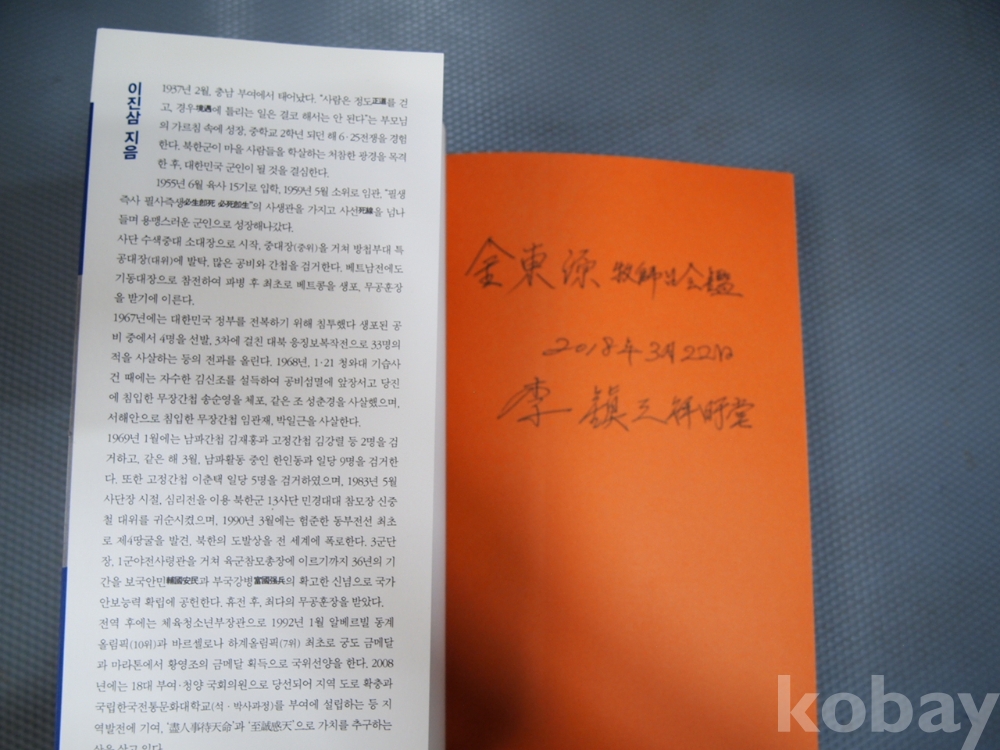 이진삼 지음
1937년 2월, 충남 부여에서 태어났다. “사람은 정도正道를 걷
고, 경우境遇에 틀리는 일은 결코 해서는 안 된다”는 부모님
의 가르침 속에 성장, 중학교 2학년 되던 해 6·25전쟁을 경험
한다. 북한군이 마을 사람들을 학살하는 처참한 광경을 목격
한 후, 대한민국 군인이 될 것을 결심한다.
1955년 6월 육사 15기로 입학, 1959년 5월 소위로 임관. “필생
즉사 필사즉생必生卽死 必死卽生”의 사생관을 가지고 사선死線을 넘나
들며 용맹스러운 군인으로 성장해나갔다.
사단 수색중대 소대장으로 시작, 중대장(중위)을 거쳐 방첩부대 특
공대장(대위)에 발탁, 많은 공비와 간첩을 검거한다. 베트남전에도
기동대장으로 참전하여 파병 후 최초로 베트콩을 생포, 무공훈장
을 받기에 이른다.
1967년에는 대한민국 정부를 전복하기 위해 침투했다 생포된 공
비 중에서 4명을 선발, 3차에 걸친 대북 응징보복작전으로 33명의
적을 사살하는 등의 전과를 올린다. 1968년, 1·21 청와대 기습사
건 때에는 자수한 김신조를 설득하여 공비섬멸에 앞장서고 당진
에 침입한 무장간첩 송순영을 체포, 같은 조 성춘경을 사살했으며,
서해안으로 침입한 무장간첩 임관재, 박일근을 사살한다.
1969년 1월에는 남파간첩 김재홍과 고정간첩 김강렬 등 2명을 검
거하고, 같은 해 3월, 남파활동 중인 한인동과 일당 9명을 검거한
다. 또한 고정간첩 이춘택 일당 5명을 검거하였으며, 1983년 5월
사단장 시절, 심리전을 이용 북한군 13사단 민경대대 참모장 신중
철 대위를 귀순시켰으며, 1990년 3월에는 험준한 동부전선 최초
로 제4땅굴을 발견, 북한의 도발상을 전 세계에 폭로한다. 3군단
장, 1군야전사령관을 거쳐 육군참모총장에 이르기까지 36년의 기
간을 보국안민輔國安民과 부국강병富國强兵의 확고한 신념으로 국가
안보능력 확립에 공헌한다. 휴전 후, 최다의 무공훈장을 받았다.
전역 후에는 체육청소년부장관으로 1992년 1월 알베르빌 동계
올림픽(10위)과 바르셀로나 하계올림픽(7위) 최초로 궁도 금메달
과 마라톤에서 황영조의 금메달 획득으로 국위선양을 한다. 2008
년에는 18대 부여·청양 국회의원으로 당선되어 지역 도로 확충과
국립한국전통문화대학교(석·박사과정)를 부여에 설립하는 등 지
역발전에 기여, ‘盡人事待天命’과 ‘至誠感天’으로 가치를 추구하는
삶을 살고 있다.
金東源 牧師님 會鑑
2018年 3月 22日
李鎭三
kobay